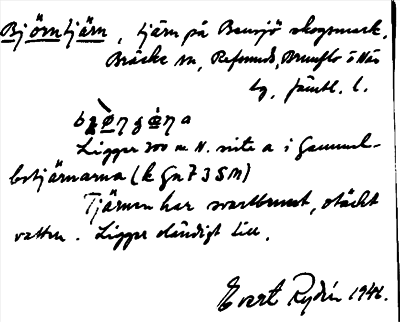 Björntjärn, tjärn på Bensjö skogsmark,
Bräcke sn, Refsunds, Brunflo o Näs
tg, Jämtl. l.
Ligger 200 m N. inite a i Gammel-
botjärnarna (k G n 7 3 S M)
Tjärnen har svartbrunt, otäckt
vatten. Ligger oländigt till.
Evert Rydén 1946.